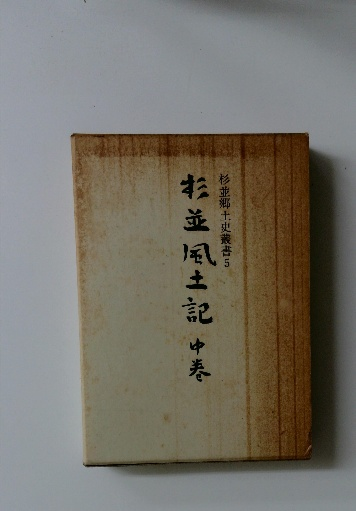 杉並郷土史叢書5
杉並風土記 中巻